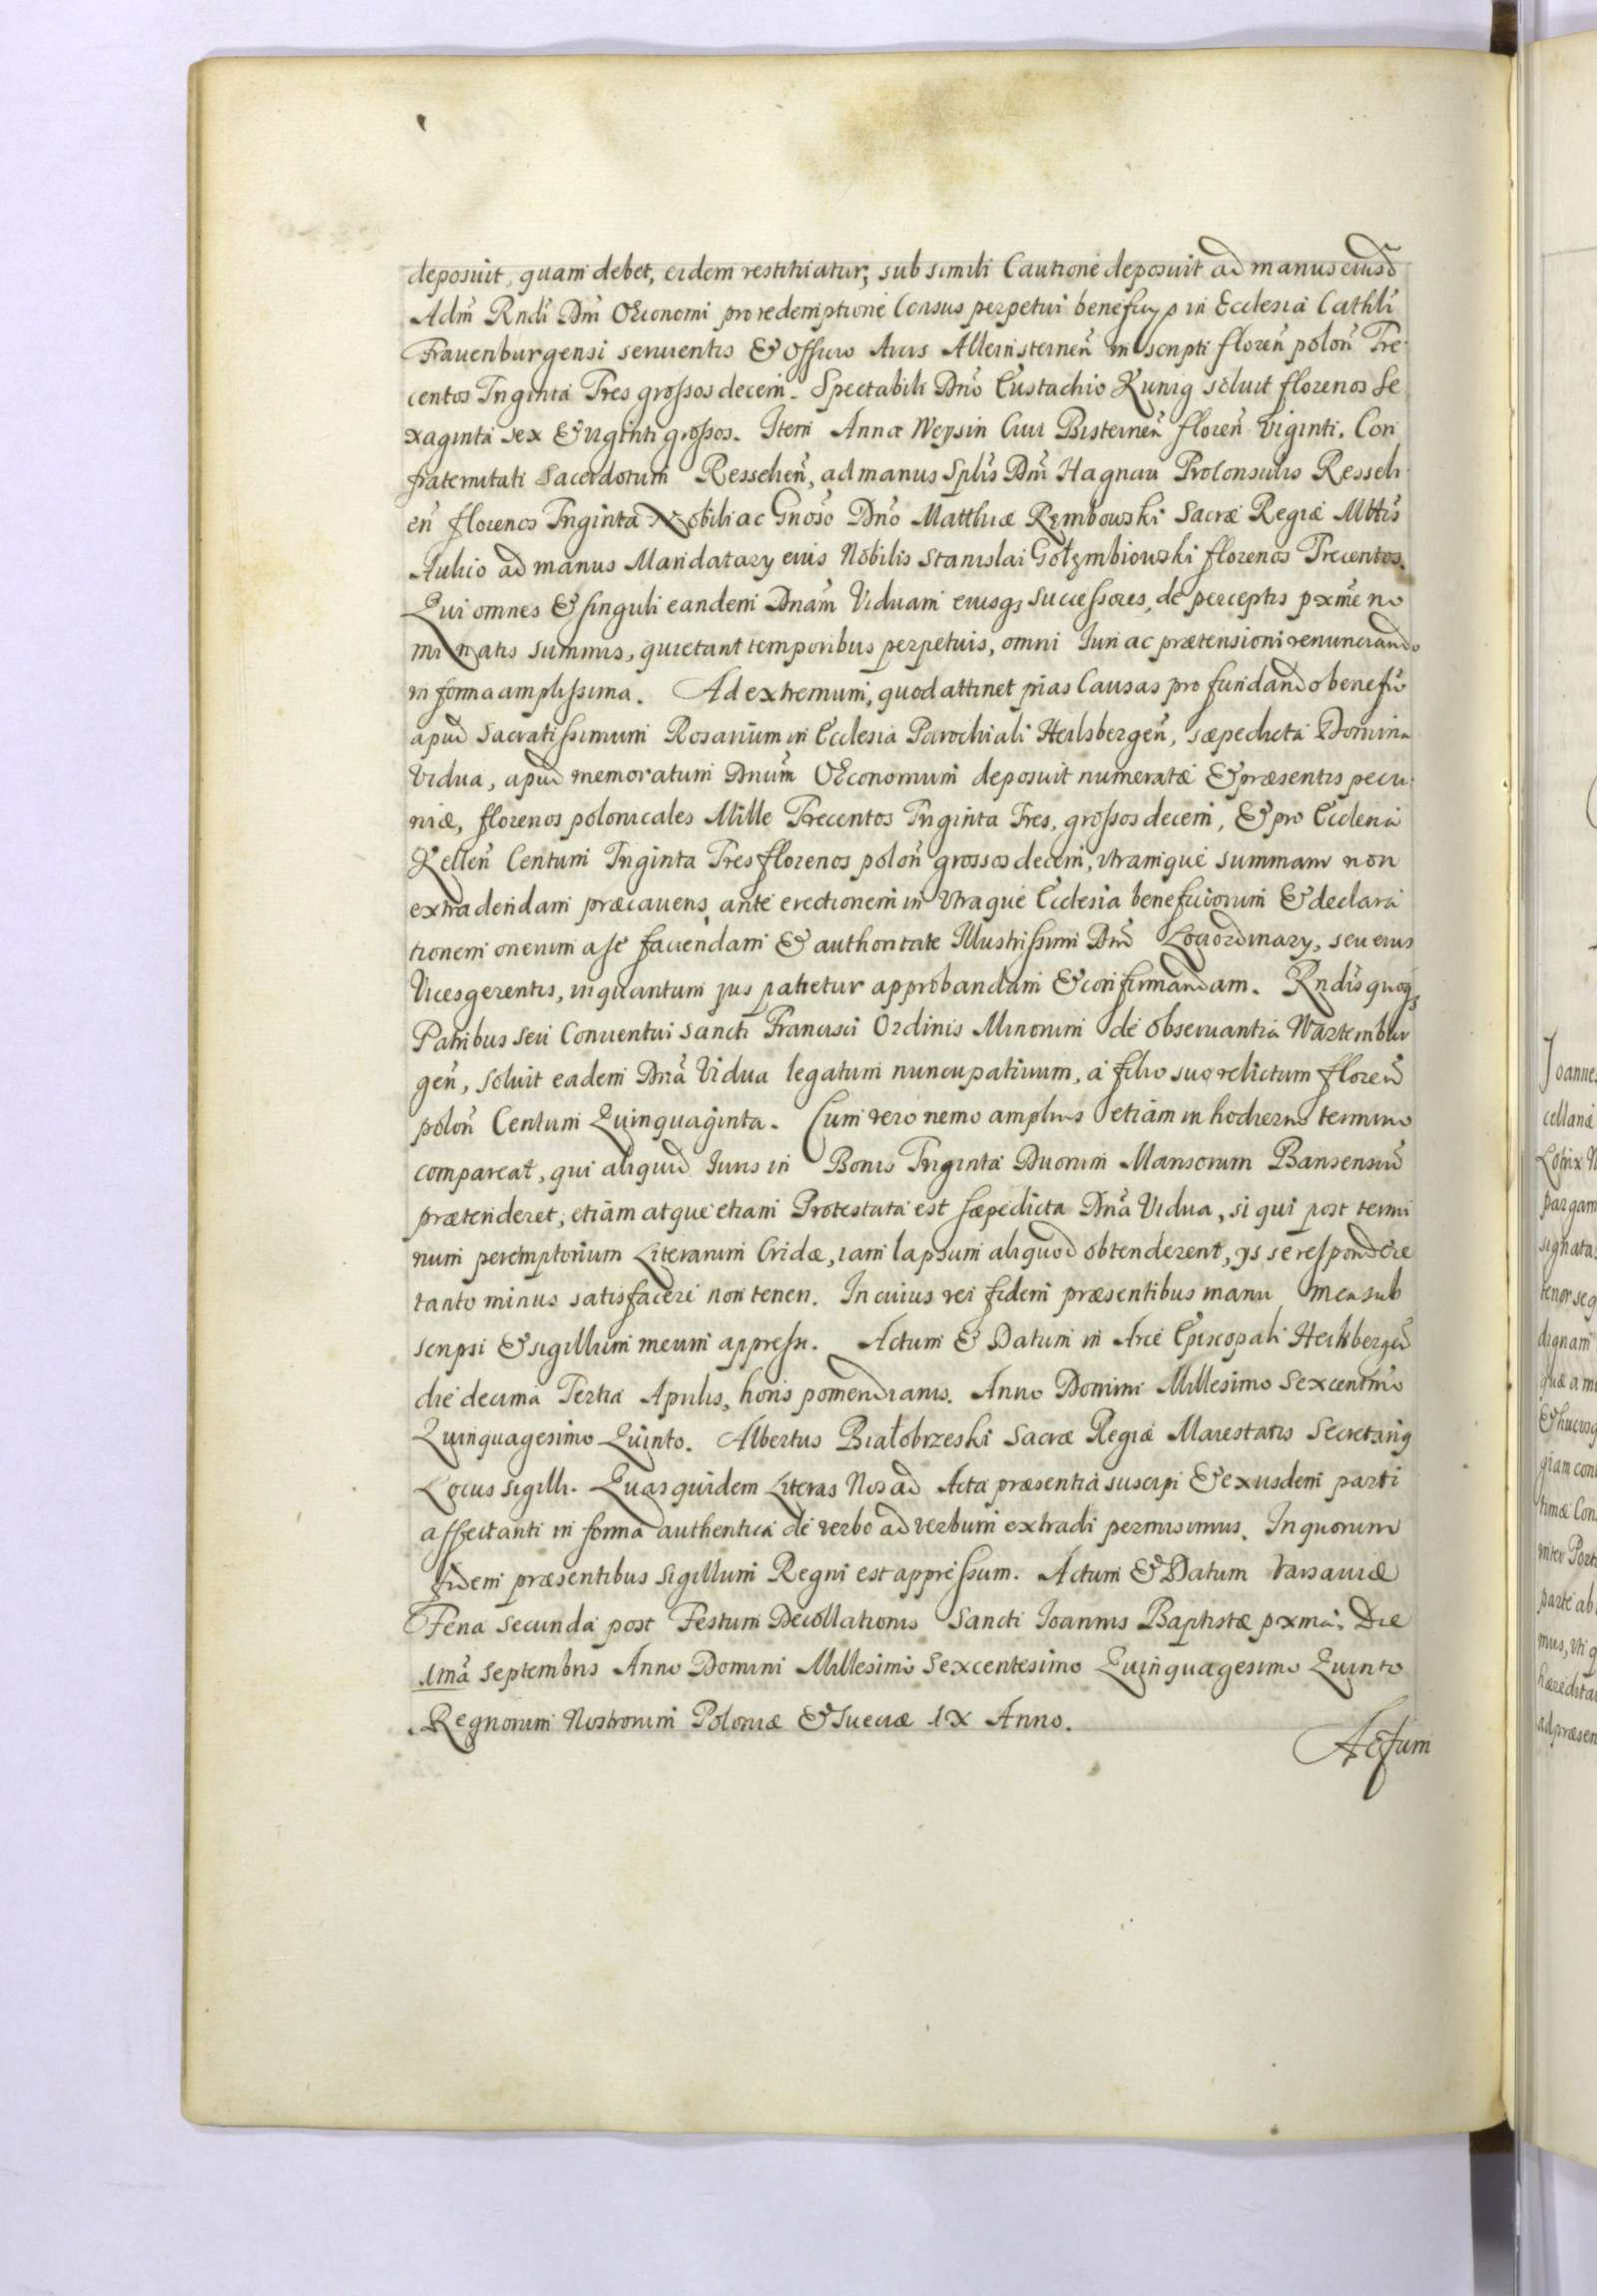 deposuit, quam debet, eidem restituatur; sub simili Cautione deposuit ad manus eiusd
Adm̃ Rndi Dni OEconomi pro redemptione Census perpetui beneficÿ in Ecclesia Cathli
Frauenburgensi seruientis & Officio Arcis Alleinsteineñ inscripti floreñ poloñ Tre
centos Triginta Tres grossos decem. Spectabili Dno Eustachio Kunig soluit florenos Se
xaginta sex & viginti grossos. Item Annæ Weysin Ciui Bisteineñ floreñ Viginti. Con
fraternitati Sacerdotum Resselieñ, ad manus Splis Dni Hagnau Proconsulis Resseli
eñ florenos Triginta Nobili ac Gnoso Dno Matthiæ Rembowski Sacræ Regiæ Mttis
Aulico ad manus Mandatarÿ eius Nobilis Stanislai Gołembiowski florenos Trecentos.
Qui omnes & singuli eandem Dnam Viduam eiusq; successores, de perceptis pxme no
minatis summis, quietant temporibus perpetuis, omni Iuri ac prætensioni renunciando
in forma amplissima. Ad extremum, quod attinet pias Causas pro fundando beneficio
apud Sacratissimum Rosarium in Ecclesia Parochiali Heilsbergeñ, sæpedicta Domina
Vidua, apud memoratum Dnum OEconomum deposuit numeratæ & præsentis pecu
niæ, florenos polonicales Mille Trecentos Triginta Tres, grossos decem, & pro Ecclesia
Kelleñ Centum Triginta Tres florenos poloñ grossos decem, vtramque summam non
extradendam præcauens, ante erectionem in Vtraque Ecclesia beneficiorum & declara
tionem onerum a se faciendam & authoritate Illustrissimi Dni Lociordinarÿ, seu eius
Vicesgerentis, inquantum jus patietur approbandam & confirmandam. Rndis quoq;
Patribus seu Conuentui Sancti Francisci Ordinis Minorum de Obseruantia Wartembur
geñ, soluit eadem Dna Vidua legatum nuncupatiuum, a filio suo relictum floreñ
poloñ Centum Quinquaginta. Cum vero nemo amplius etiam in hodierno termino
compareat, qui aliquid Iuris in Bonis Triginta Duorum Mansorum Bansensium
prætenderet, etiam atque etiam Protestata est sæpedicta Dna Vidua, si qui post termi
num peremptorium Literarum Cridæ, iam lapsum aliquod obtenderent, ÿs se respondere
tanto minus satisfacere non teneri. In cuius rei fidem præsentibus manu mea sub
scripsi & sigillum meum appressi. Actum & Datum in Arce Episcopali Heilsbergeñ
die decima Tertia Aprilis, horis pomeridianis. Anno Domini Millesimo Sexcentmo
Quinquagesimo Quinto. Albertus Białobrzeski Sacræ Regiæ Maiestatis Secretariq
Locus Sigilli. Quas quidem Literas Nos ad Acta præsentia suscipi & exusdem parti
affectanti in forma authentica de verbo ad verbum extradi permisimus. In quorum
fidem præsentibus Sigillum Regni est appressum. Actum & Datum Varsauiæ
Feria Secunda post Festum Decollationis Sancti Ioannis Baptistæ pxma. Die
1ma Septembris Anno Domini Millesimo Sexcentesimo Quinquagesimo Quinto
Regnorum Nostrorum Poloniæ & Sueciæ IX Anno.
Actum